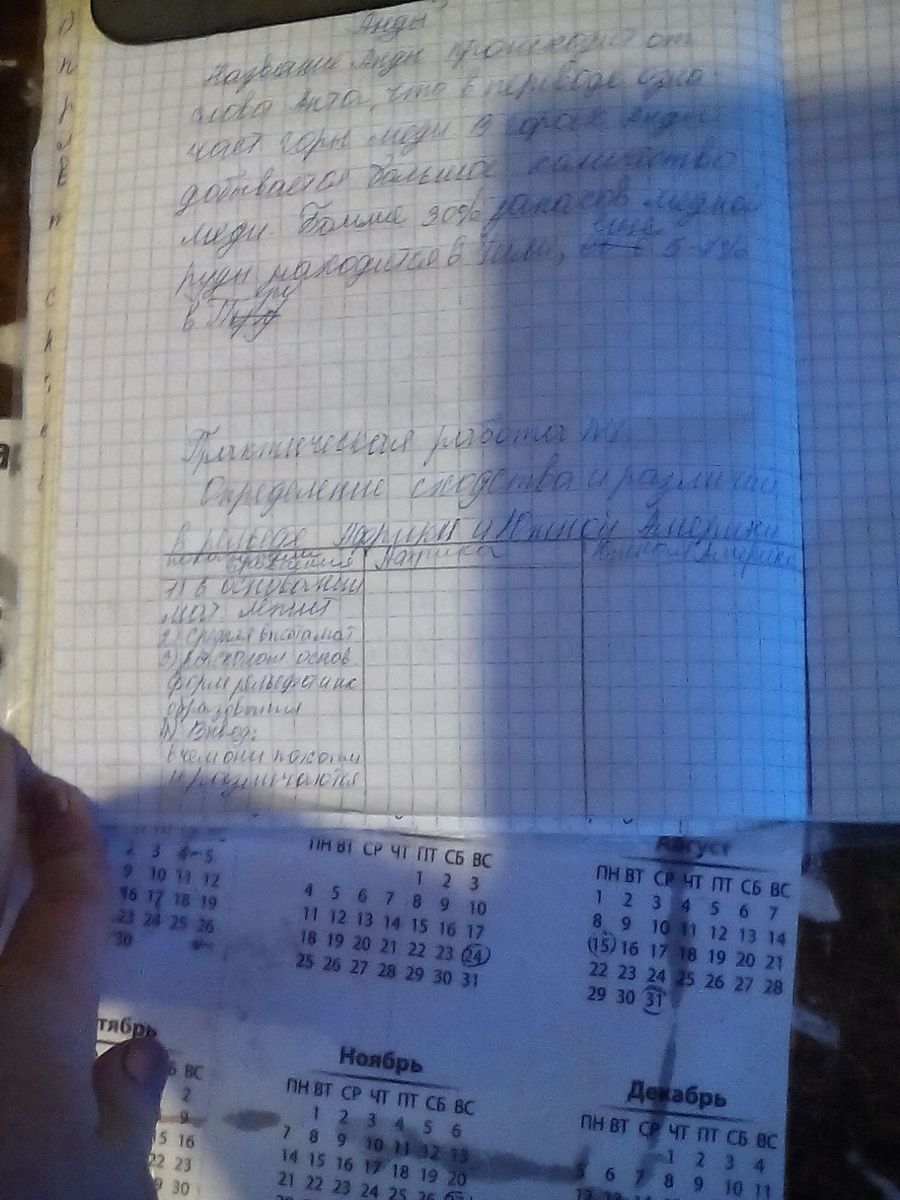 Анды
Название Анды произошло от
слова Анта, что в переводе озна-
чает горы меди. В горах Анды
добывается большое количество
меди. Больше 30% запасов медной
руды находится в Чили, еще
в Перу
Практическая работа
Определение сходства и различий
в рельефе Африки и Южной Америки
сравнения Африка Южная Америка
1) В основании
лежит
2) Средняя высота мат
3) располож основ
форм рельефа и их
образования
4) Вывод:
в чем они похожи
и различаются
2 3 4 5
9 10 11 12
16 17 18 19
23 24 25 26
30
ПН ВТ СР ЧТ ПТ СБ ВС
1 2 3
4 5 6 7 8 9 10
11 12 13 14 15 16 17
18 19 20 21 22 23 24
25 26 27 28 29 30 31
Август
ПН ВТ СР ЧТ ПТ СБ ВС
1 2 3 4 5 6 7
8 9 10 11 12 13 14
15 16 17 18 19 20 21
22 23 24 25 26 27 28
29 30 31
тябрь
Б ВС
2
9
15 16
22 23
9 30
Ноябрь
ПН ВТ СР ЧТ ПТ СБ ВС
1 2 3 4 5 6
7 8 9 10 11 12 13
14 15 16 17 18 19 20
21 22 23 24 25 26
Декабрь
ПН ВТ СР ЧТ ПТ СБ ВС
1 2 3 4
5 6 7 8 9 10 11